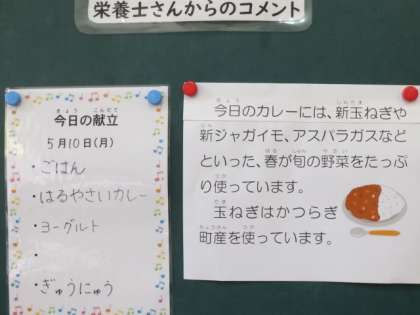 栄養士さんからのコメント
今日の献立
5月10日(月)
・ごはん
・はるやさいカレー
・ヨーグルト
・
・ぎゅうにゅう
今日のカレーには、新玉ねぎや
新ジャガイモ、アスパラガスなど
といった、春が旬の野菜をたっぷ
り使っています。
玉ねぎはかつらぎ
町産を使っています。